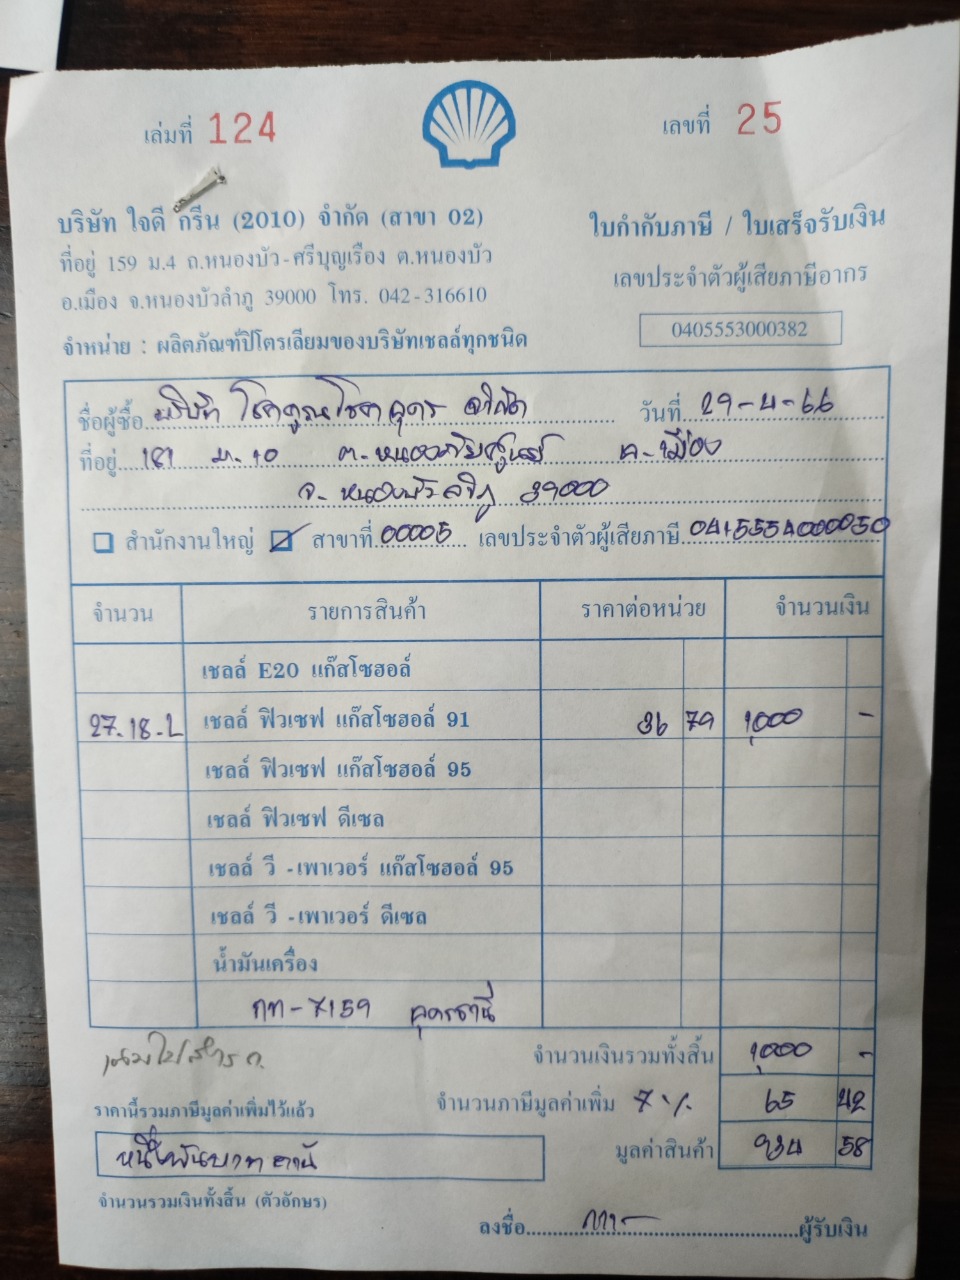 เล่มที่ 124
เลขที่ 25
บริษัท ใจดี กรีน (2010) จำกัด (สาขา 02)
ที่อยู่ 159 ม.4 ถ.หนองบัว-ศรีบุญเรือง ต.หนองบัว
อ.เมือง จ.หนองบัวลำภู 39000 โทร. 042-316610
จำหน่าย : ผลิตภัณฑ์ปิโตรเลียมของบริษัทเชลล์ทุกชนิด
ใบกำกับภาษี / ใบเสร็จรับเงิน
เลขประจำตัวผู้เสียภาษีอากร
0405553000382
ชื่อผู้ซื้อ บริษัท โชคคูณโชคอุดร จำกัด วันที่ 29-4-66
ที่อยู่ 181 ม.10 ต.หนองภัยศูนย์ อ.เมือง
จ.หนองบัวลำภู 39000
สำนักงานใหญ่ สาขาที่ 00005 เลขประจำตัวผู้เสียภาษี 0415554000050
จำนวน รายการสินค้า ราคาต่อหน่วย จำนวนเงิน
เชลล์ E20 แก๊สโซฮอล์
27.18.L เชลล์ ฟิวเซฟ แก๊สโซฮอล์ 91 36 79 1,000 -
เชลล์ ฟิวเซฟ แก๊สโซฮอล์ 95
เชลล์ ฟิวเซฟ ดีเซล
เชลล์ วี -เพาเวอร์ แก๊สโซฮอล์ 95
เชลล์ วี -เพาเวอร์ ดีเซล
น้ำมันเครื่อง
กท-7159 อุดรธานี
จำนวนเงินรวมทั้งสิ้น 1,000 -
ราคานี้รวมภาษีมูลค่าเพิ่มไว้แล้ว
จำนวนภาษีมูลค่าเพิ่ม 7% 65 42
หนึ่งพันบาทถ้วน
มูลค่าสินค้า 934 58
จำนวนรวมเงินทั้งสิ้น (ตัวอักษร)
ลงชื่อ ผู้รับเงิน